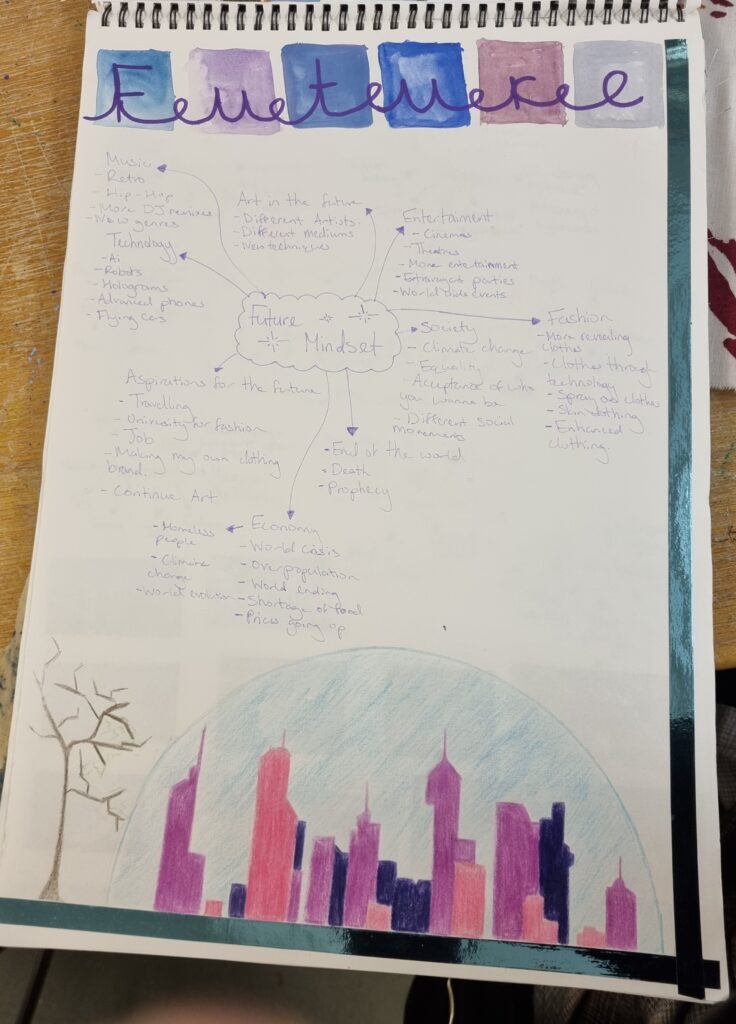 Future
Music
- Retro
- Hip-Hop
- More DJ remixes
- New genres
Technology
- Ai
- Robots
- Holograms
- Advanced phones
- Flying Cars
Art in the future
- Different Artists.
- Different mediums
- New techniques
Entertaiment
- Cinemas
- Theatres
- More entertainment
- Extravagant parties
- World wide events
Future
Mindset
Society
- Climate change
- Equality
- Acceptance of who
you wanna be
- Different social
movements
Fashion
- More revealing
clothes
- Clothes through
technology
- Spray on clothes
- Skin clothing
- Enhanced
clothing.
Aspirations for the future
- Travelling
- University for fashion
- Job
- Making my own clothing
brand.
- Continue Art
- End of the world
- Death
- Prophecy
Economy
- World Crisis
- Overpopulation
- World ending
- Shortage of food
- Prices going up
- Homeless
people
- Climate
change
- World evolution